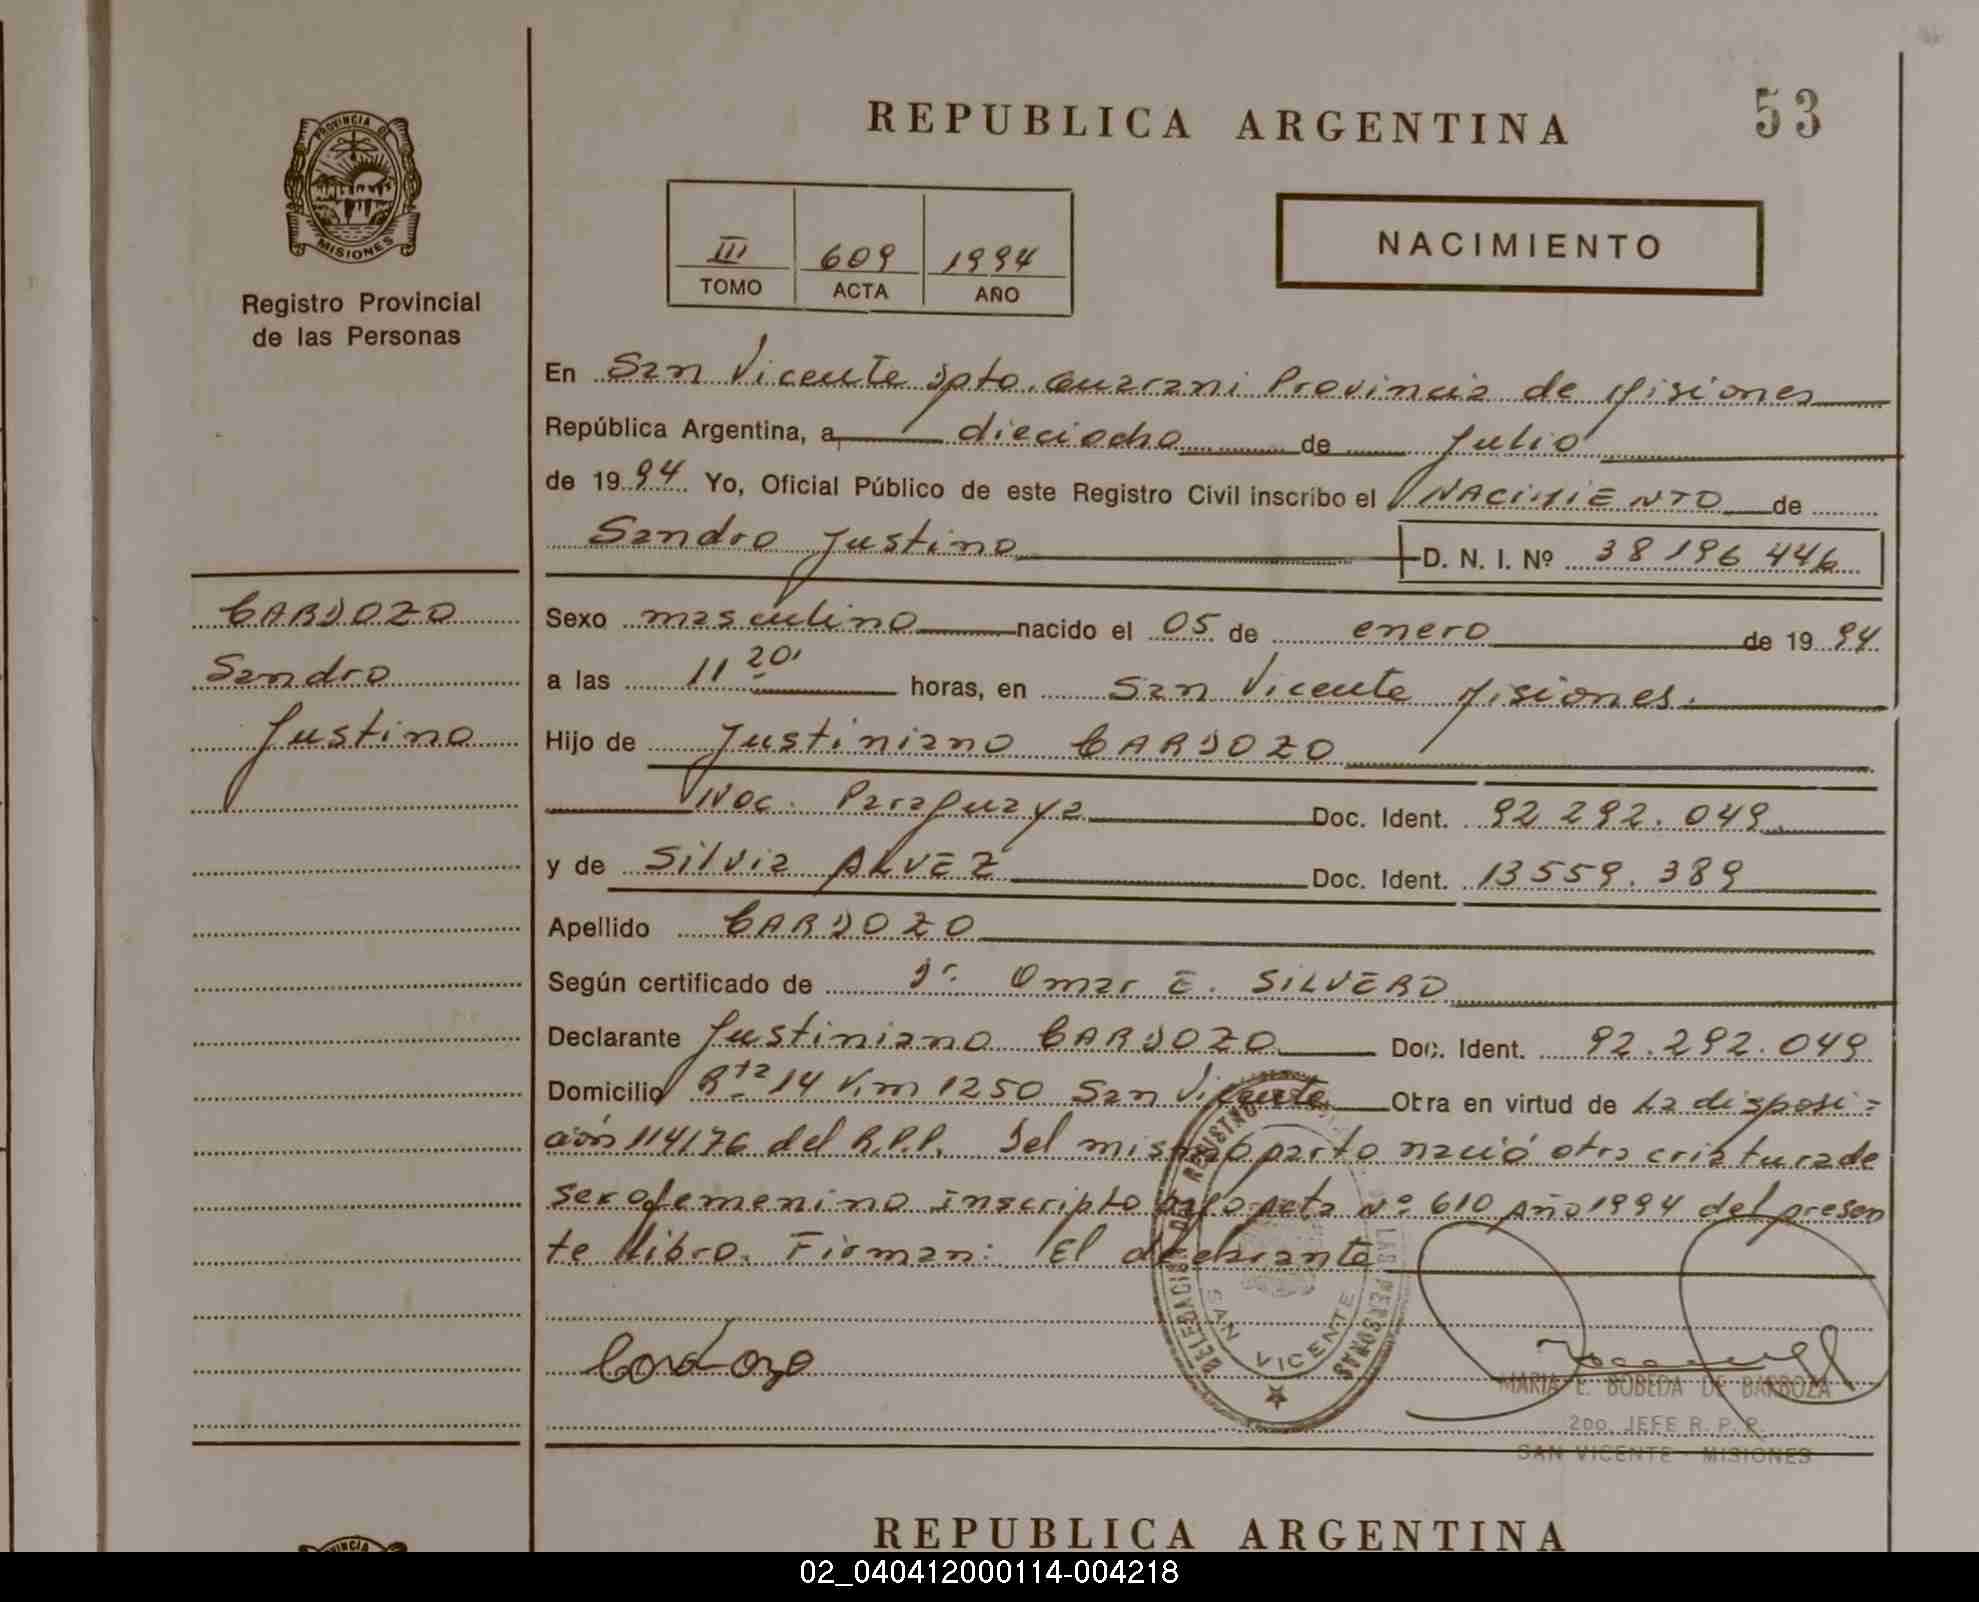 REPUBLICA ARGENTINA
53
PROVINCIA DE
MISIONES
Registro Provincial
de las Personas
III 609 1994
TOMO ACTA AÑO
NACIMIENTO
En San Vicente Dpto. Guarani Provincia de Misiones
República Argentina, a dieciocho de Julio
de 1994 Yo, Oficial Público de este Registro Civil inscribo el NACIMIENTO de
Sandro Justino D. N. I. Nº 38196446
CARDOZO
Sandro
Justino
Sexo masculino nacido el 05 de enero de 1994
a las 11 20' horas, en San Vicente Misiones.
Hijo de Justiniano CARDOZO
Nac. Paraguaya Doc. Ident. 92 292.049
y de Silvia ALVEZ Doc. Ident. 13559.389
Apellido CARDOZO
Según certificado de Dr. Omar E. SILVERO
Declarante Justiniano CARDOZO Doc. Ident. 92.292.049
Domicilio Rta 14 Km 1250 San Vicente Obra en virtud de La disposi=
ción 114/76 del R.P.P. Del mismo parto nació otra criatura de
sexo femenino inscripto bajo acta Nº 610 Año 1994 del presen
te libro. Firman: El declarante
DELEGACION DEL REGISTRO LAS PERSONAS
SAN VICENTE
Cardozo
MARIA E. BOBEDA DE BARBOZA
2DO. JEFE R. P. P.
SAN VICENTE - MISIONES
REPUBLICA ARGENTINA
02_040412000114-004218